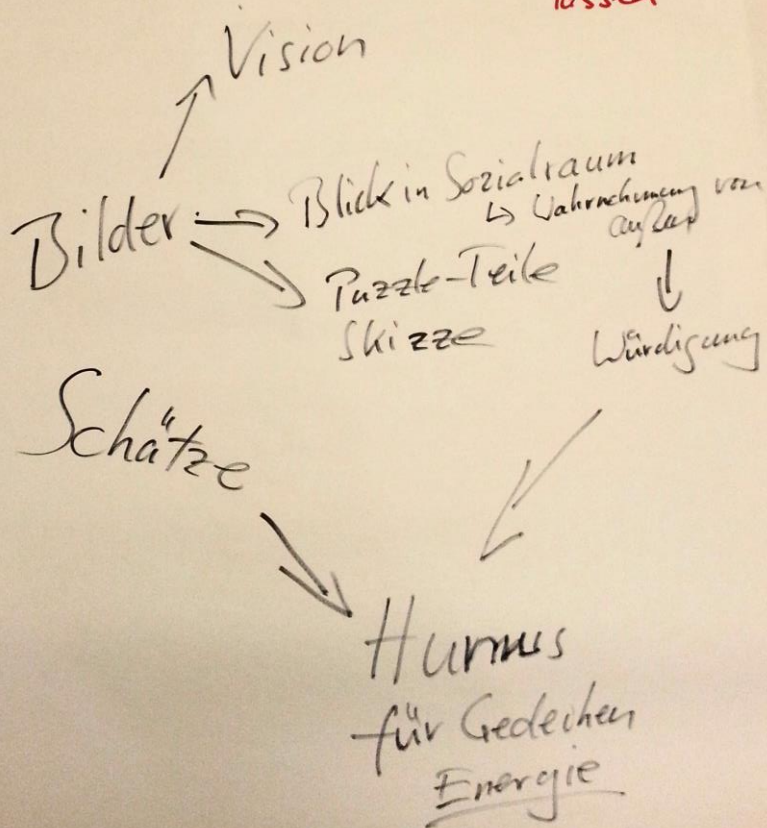 Vision
Bilder
Blick in Sozialraum
Wahrnehmung von
außen
Puzzle-Teile
Skizze
Würdigung
Schätze
Humus
für Gedeihen
Energie